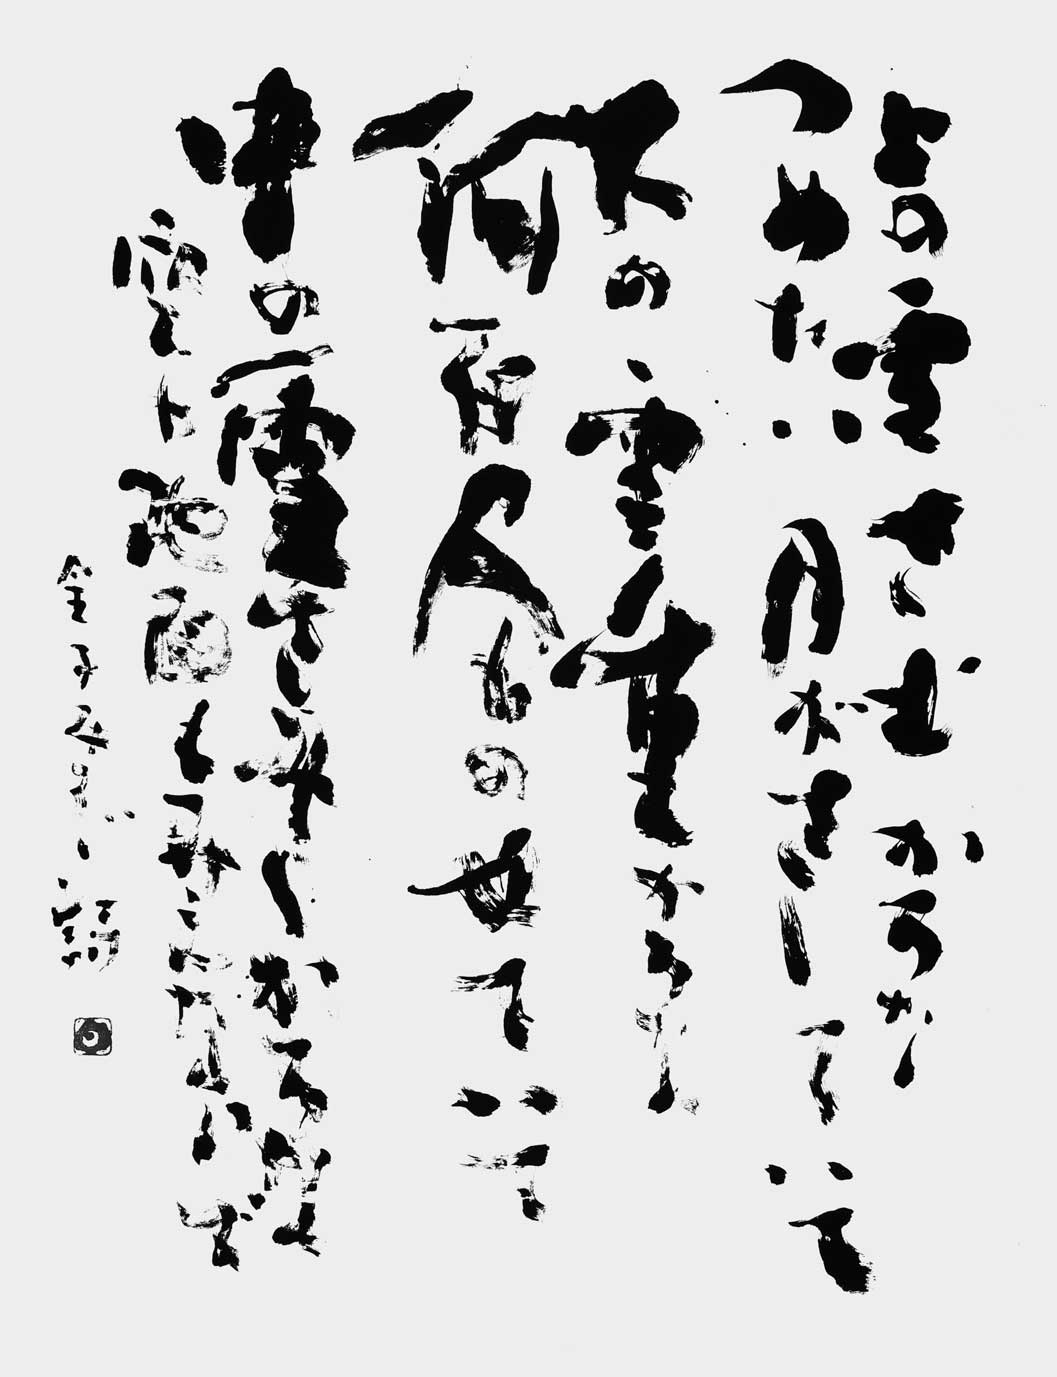 上の雪 さむかろな
つめたい月がさしていて
下の雪 重かろな
何百人ものせていて
中の雪 さみしかろな
空も地面もみえないで
金子みすゞ 詩